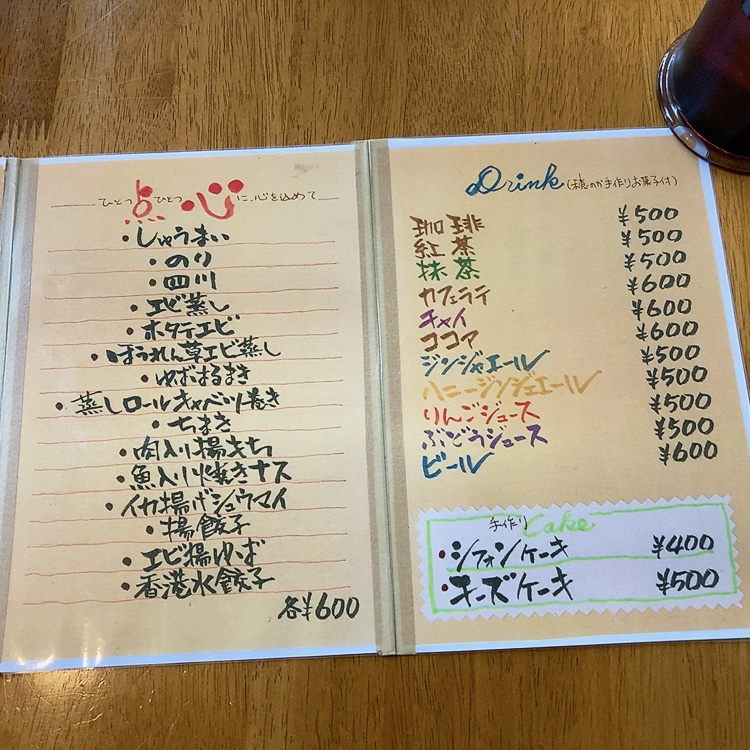 ひとつ点ひとつ心に、心を込めて
・しゅうまい
・のり
・四川
・エビ蒸し
・ホタテエビ
・ほうれん草エビ蒸し
・ゆずはるまき
・蒸しロールキャベツ巻き
・ちまき
・肉入り揚もち
・魚入り焼きナス
・イカ揚げシュウマイ
・揚餃子
・エビ揚ゆば
・香港水餃子
各¥600
Drink(のか手作りお菓子付)
珈琲 ¥500
紅茶 ¥500
抹茶 ¥500
カフェラテ ¥600
チャイ ¥600
ココア ¥600
ジンジャエール ¥500
ハニージンジャエール ¥500
りんごジュース ¥500
ぶどうジュース ¥500
ビール ¥600
手作りCake
・シフォンケーキ ¥400
・チーズケーキ ¥500